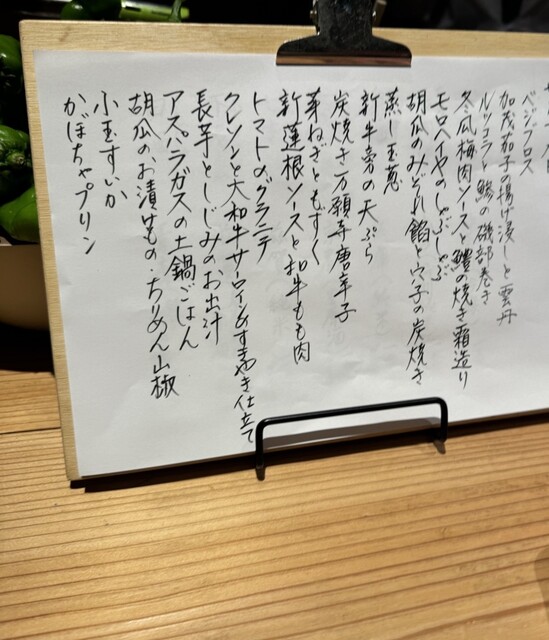 ベジブロス
加茂茄子の揚げ浸しと雲丹
ルッコラと鯵の磯部巻き
冬瓜梅肉ソースと鱧の焼き霜造り
モロヘイヤのしゃぶしゃぶ
胡瓜のみぞれ餡と穴子の炭焼き
蒸し玉葱
新牛蒡の天ぷら
炭焼き万願寺唐辛子
芽ねぎともずく
新蓮根ソースと和牛もも肉
トマトのグラニテ
クレソンと大和牛サーロインのすきやき仕立て
長芋としじみのお出汁
アスパラガスの土鍋ごはん
胡瓜のお漬けもの・ちりめん山椒
小玉すいか
かぼちゃプリン